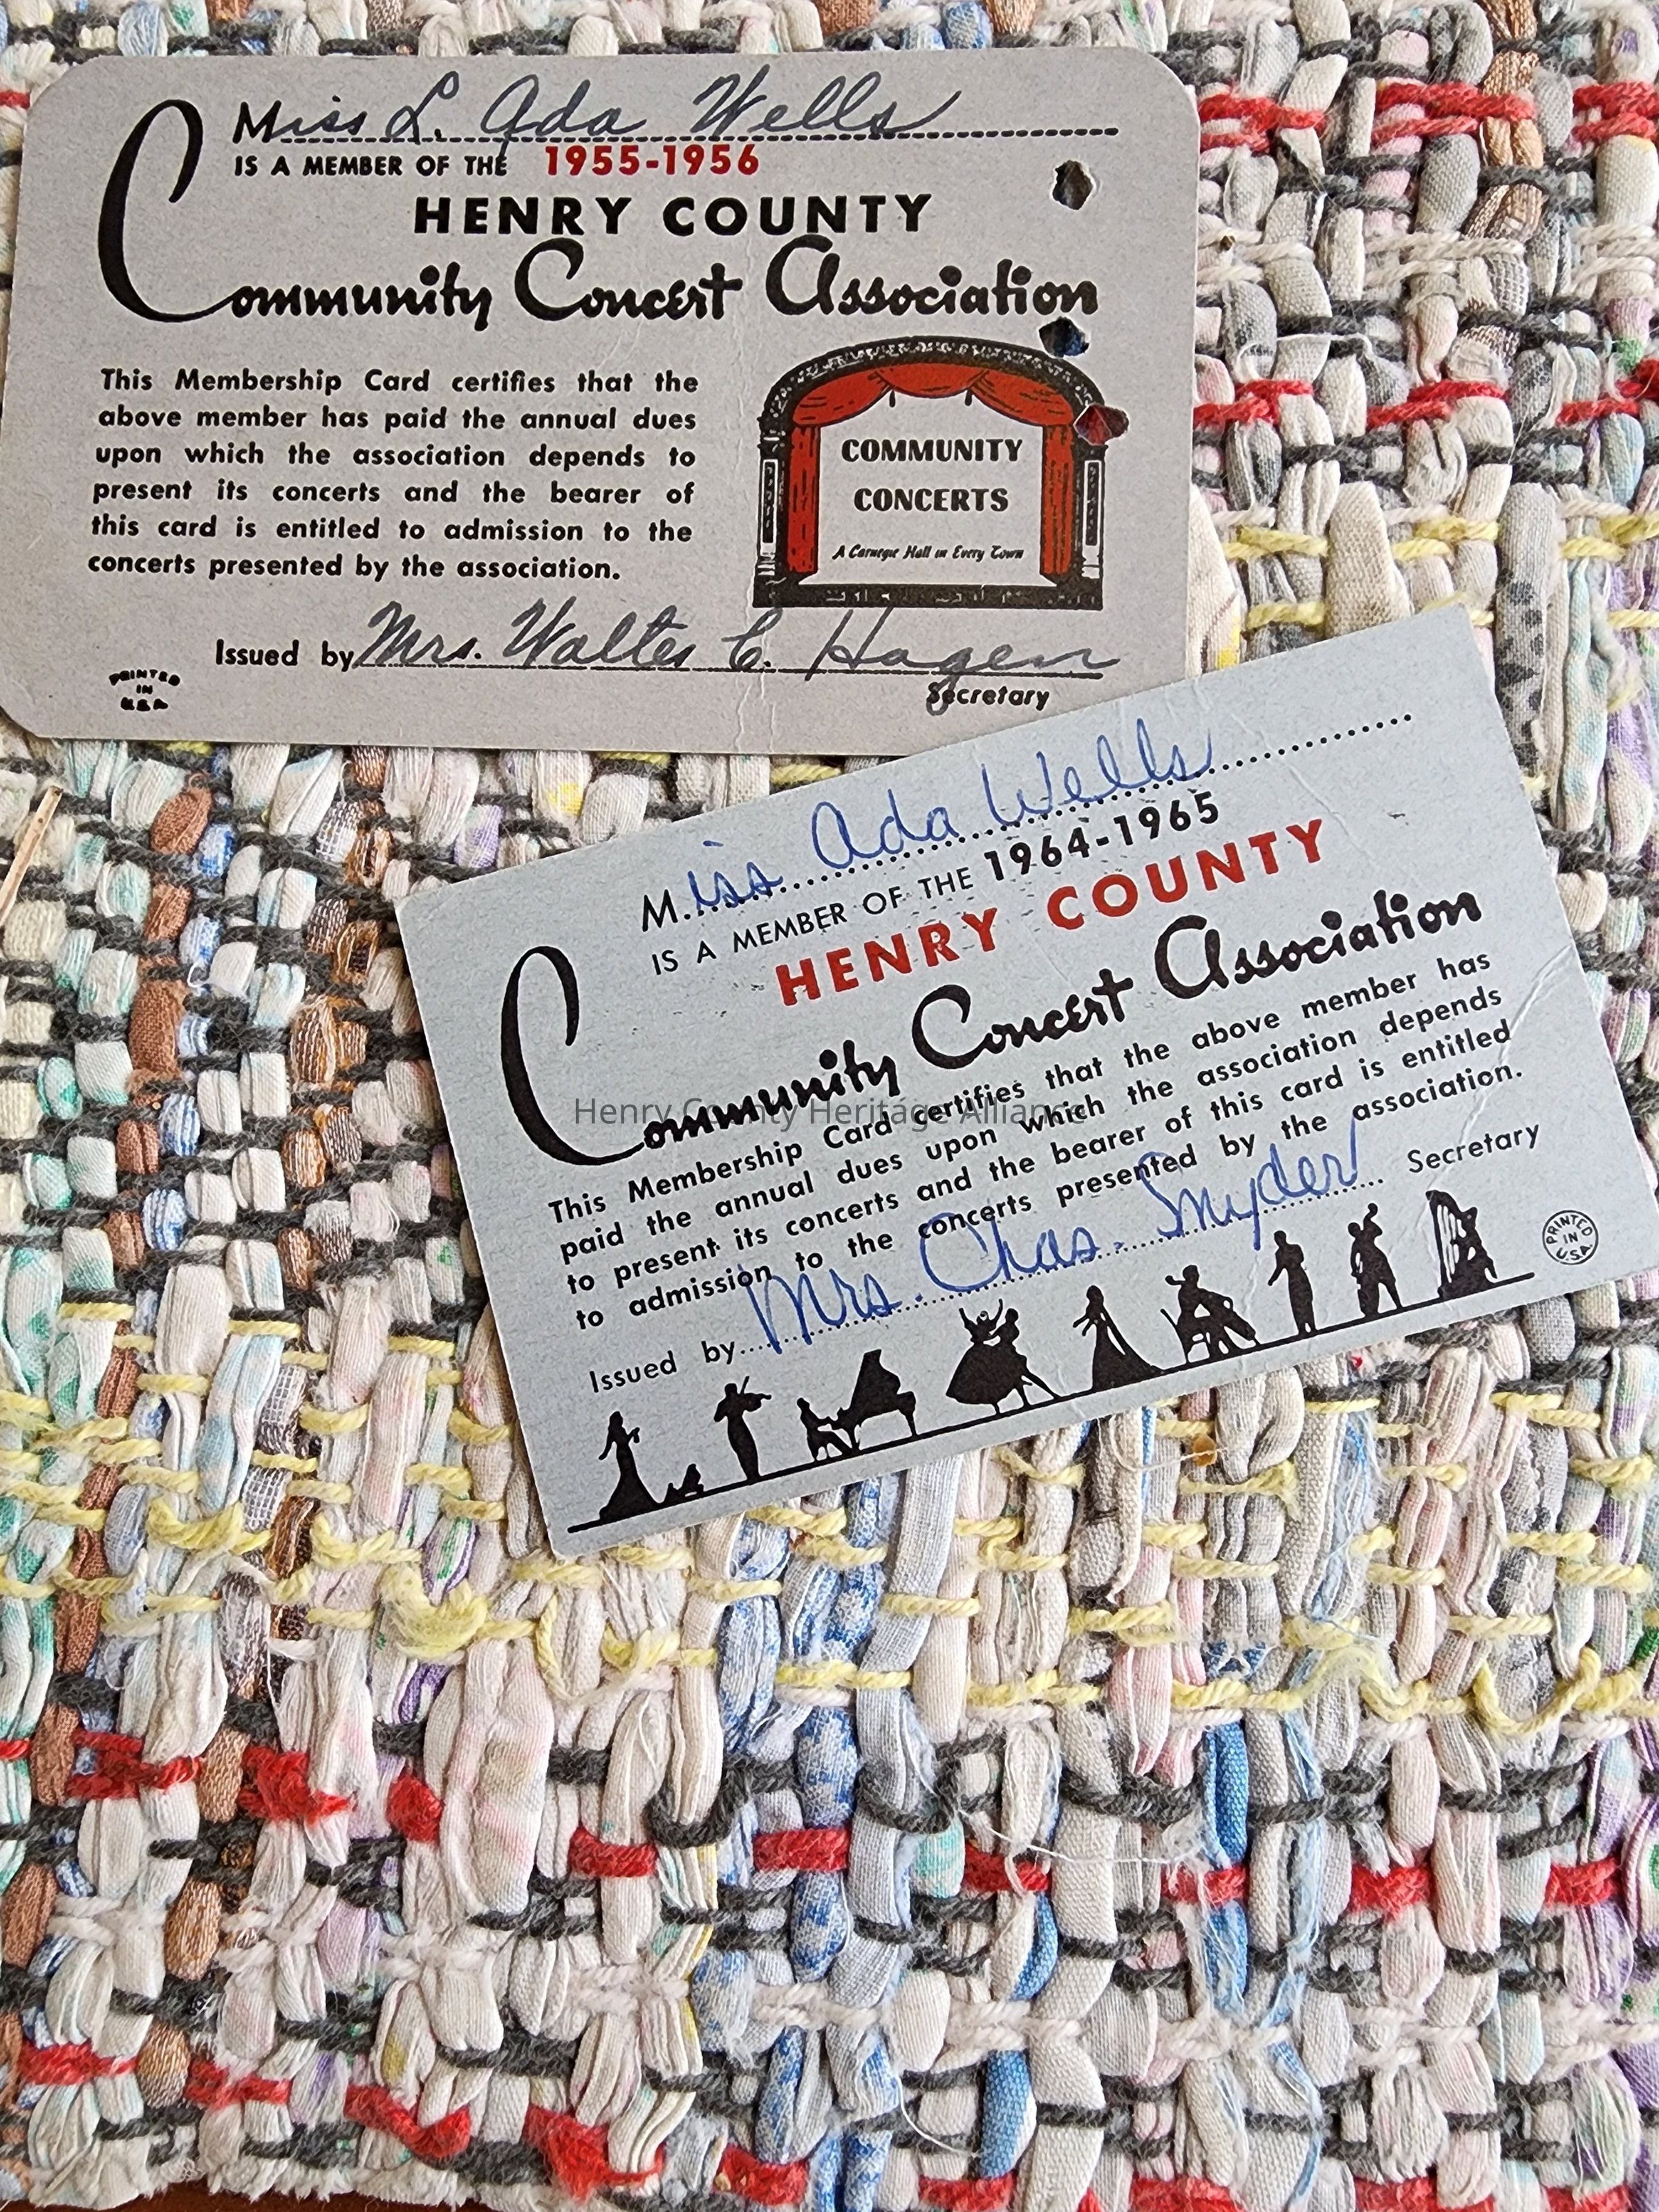 Miss L. Ada Wells
IS A MEMBER OF THE 1955-1956
HENRY COUNTY
Community Concert Association
This Membership Card certifies that the
above member has paid the annual dues
upon which the association depends to
present its concerts and the bearer of
this card is entitled to admission to the
concerts presented by the association.
COMMUNITY
CONCERTS
A Carnegie Hall in Every Town
Issued by Mrs. Walter C. Hagen
Secretary
PRINTED
IN
U.S.A.
M.iss Ada Wells
IS A MEMBER OF THE 1964-1965
HENRY COUNTY
Community Concert Association
This Membership Card certifies that the above member has
paid the annual dues upon which the association depends
to present its concerts and the bearer of this card is entitled
to admission to the concerts presented by the association.
Issued by Mrs. Chas. Snyder Secretary
PRINTED
IN
U.S.A.
Henry County Heritage Alliance